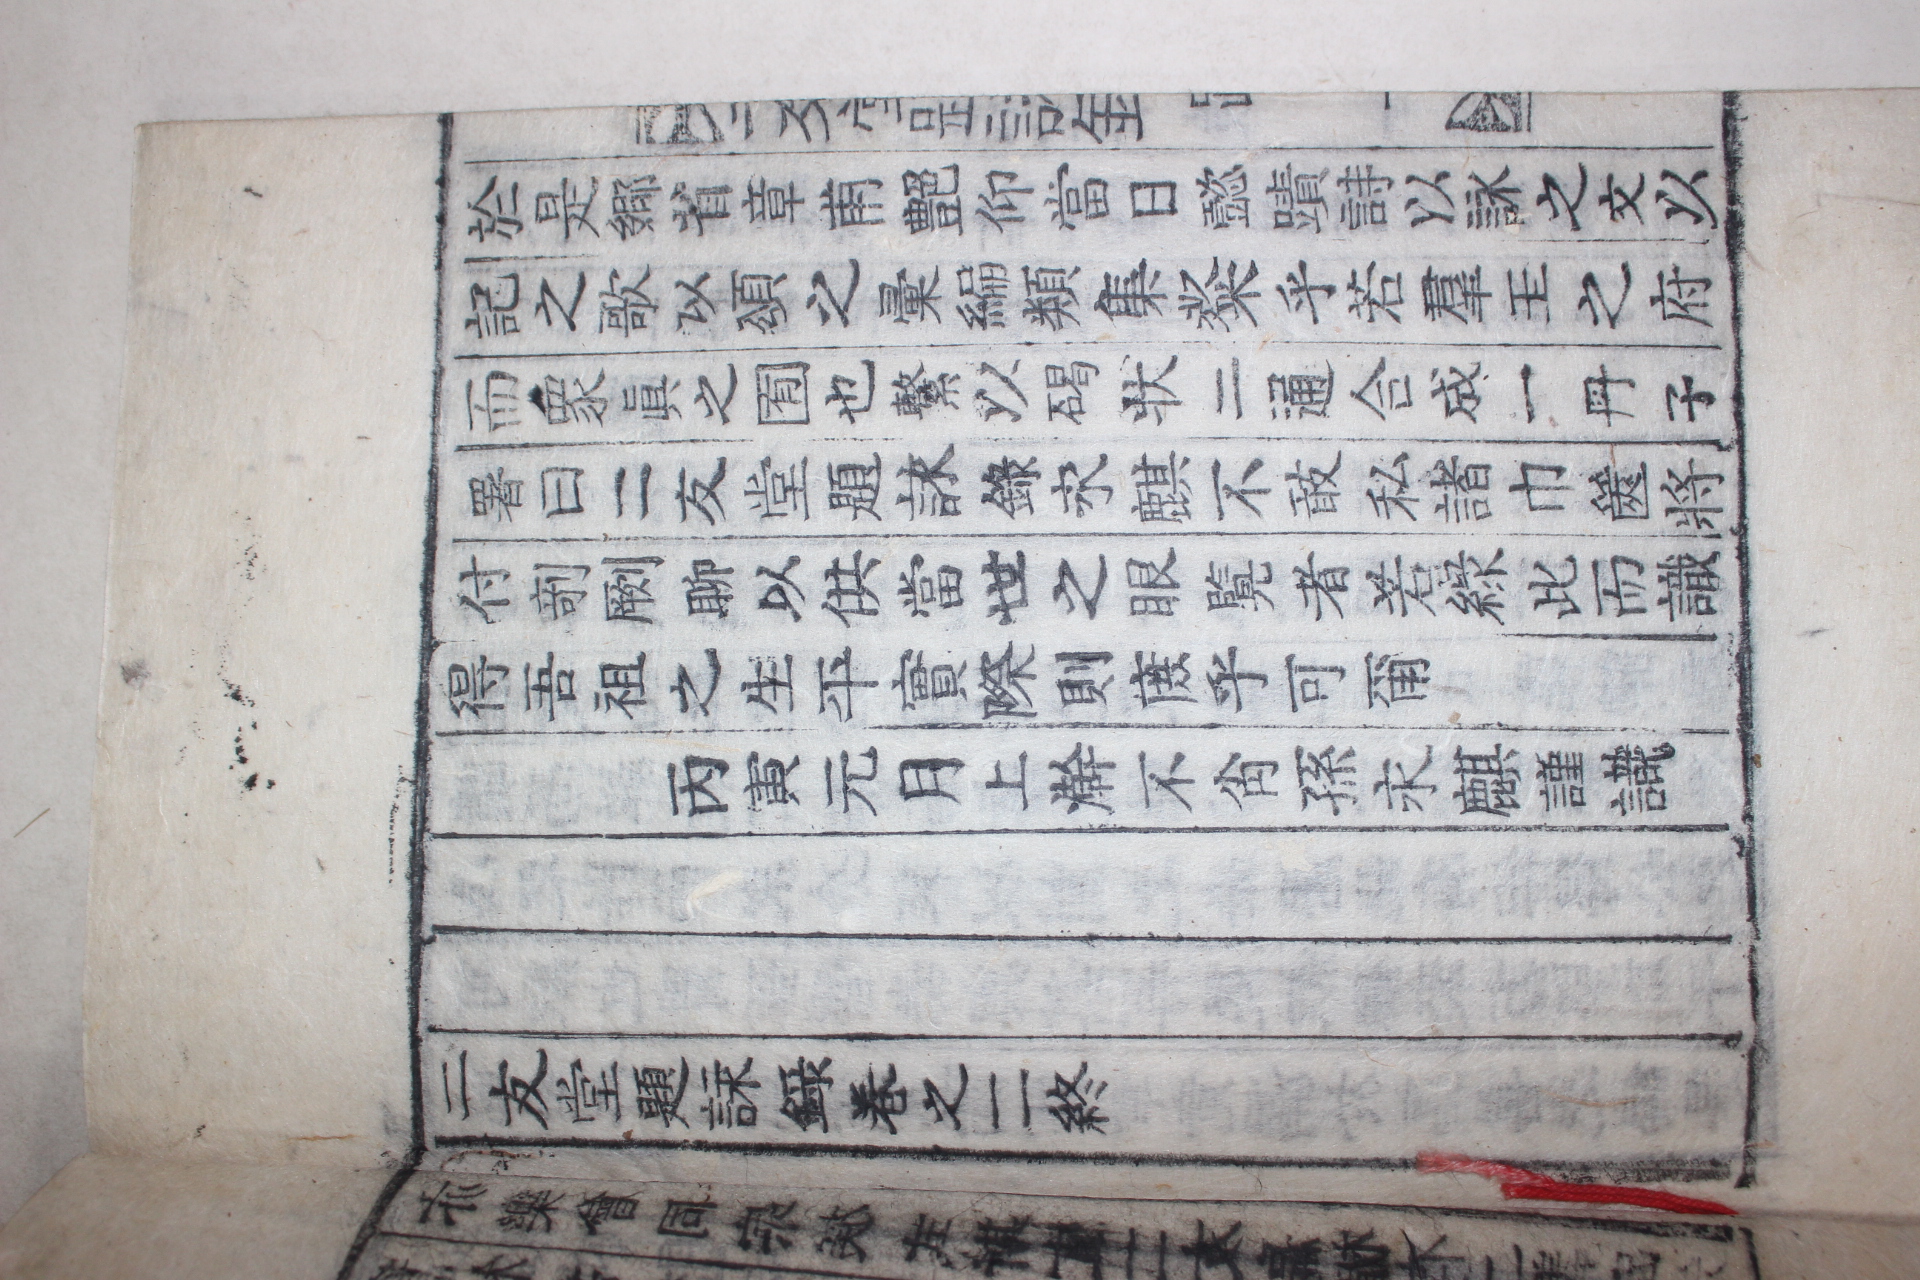 於是鄉省章甫艷仰當日懿蹟詩以詠之文以
記之歌以頌之彙編類集粲乎若羣玉之府
而衆眞之囿也繫以碣狀二通合成一冊子
署曰二友堂題詠錄永麒不敢私諸巾篋將
付剞劂聊以供當世之眼覽者若緣此而識
得吾祖之生平實際則庶乎可爾
丙寅元月上澣不肖孫永麒謹識
二友堂題詠錄卷之二終